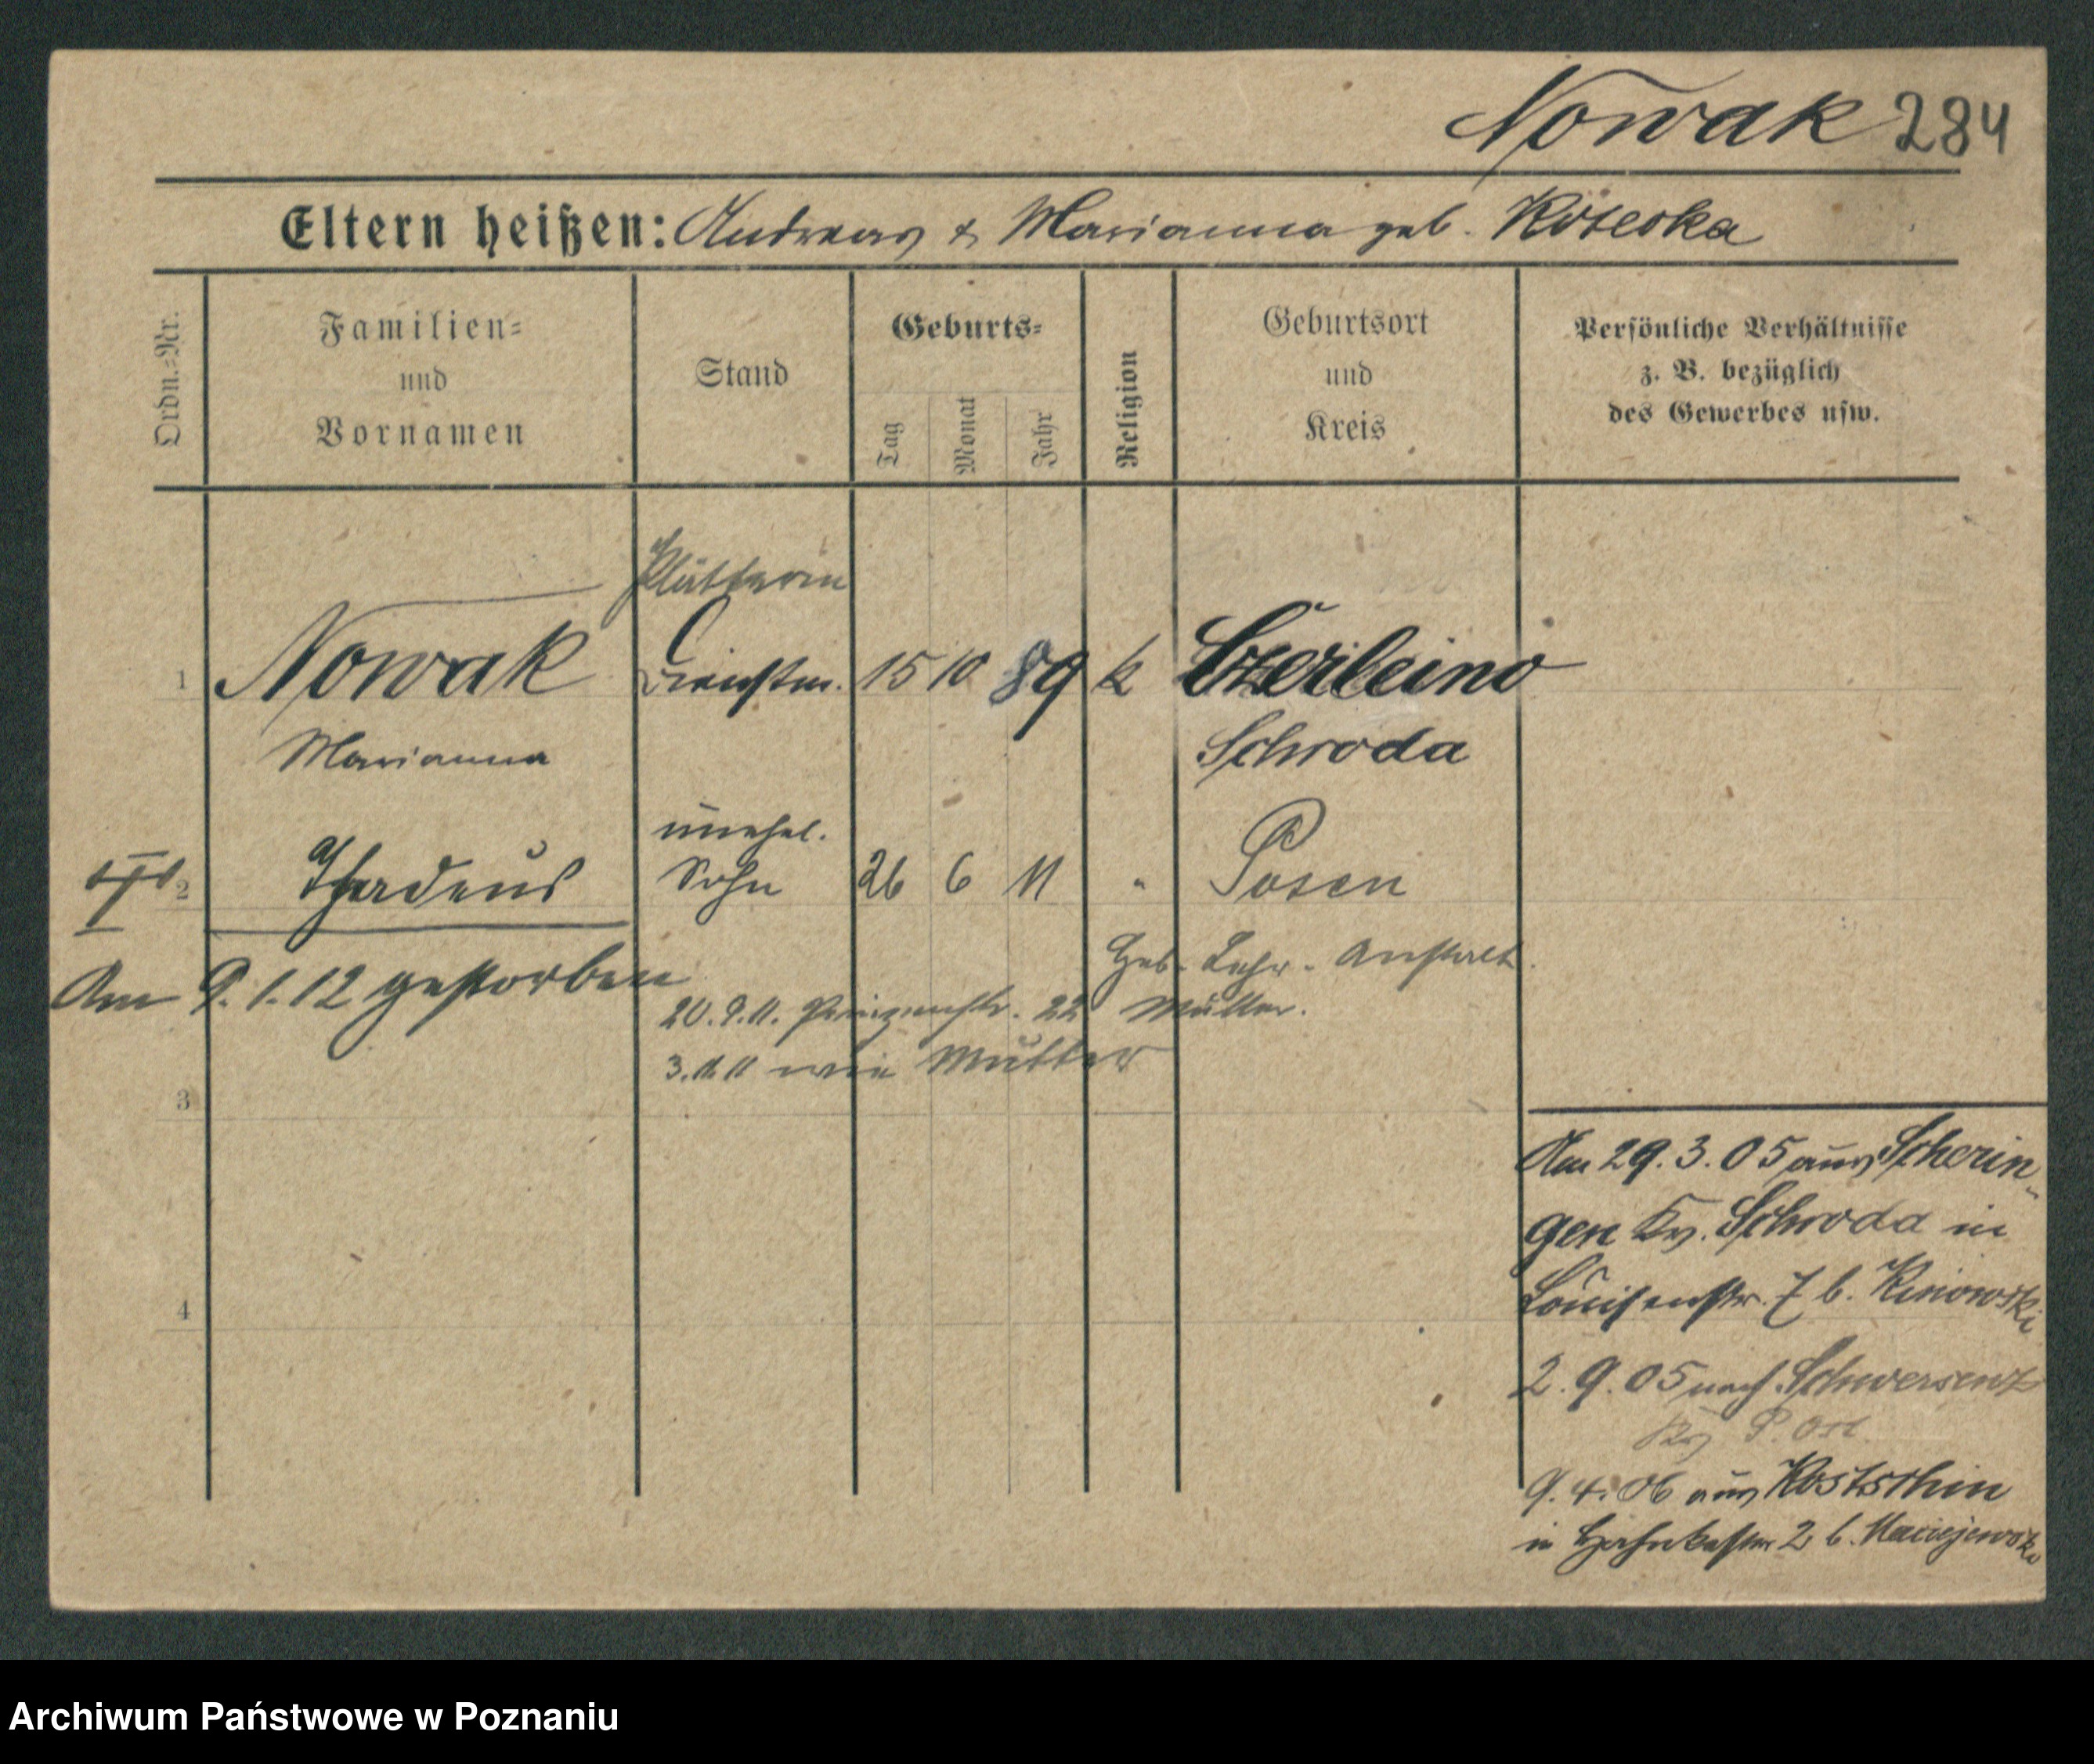 Nowak 284
Eltern heißen: Andreas & Marianna geb. Koterska
Ordn.=Nr.
Familien=
und
Vornamen
Stand
Geburts=
Tag
Monat
Jahr
Religion
Geburtsort
und
Kreis
Persönliche Verhältnisse
z. B. bezüglich
des Gewerbes usw.
Plätterin
1 Nowak Dienstm. 15 10 89 k Czerleino
Marianna Schroda
unehel.
2 Thadeus Sohn 26 6 11 " Posen
Heb. Lehr. Anstalt.
Am 9. 1. 12 gestorben
20. 9. 11. Prinzenstr. 22 Müller.
3. 11. 11 wie Mutter
3
4
Am 29. 3. 05 aus Scherin=
gen Kr. Schroda in
Louisenstr. 7 b.
2. 9. 05 nach Schwersenz
Kr. P. Ost
9. 4. 06 aus Kostschin
in 2 b. Maciejewska
Archiwum Państwowe w Poznaniu